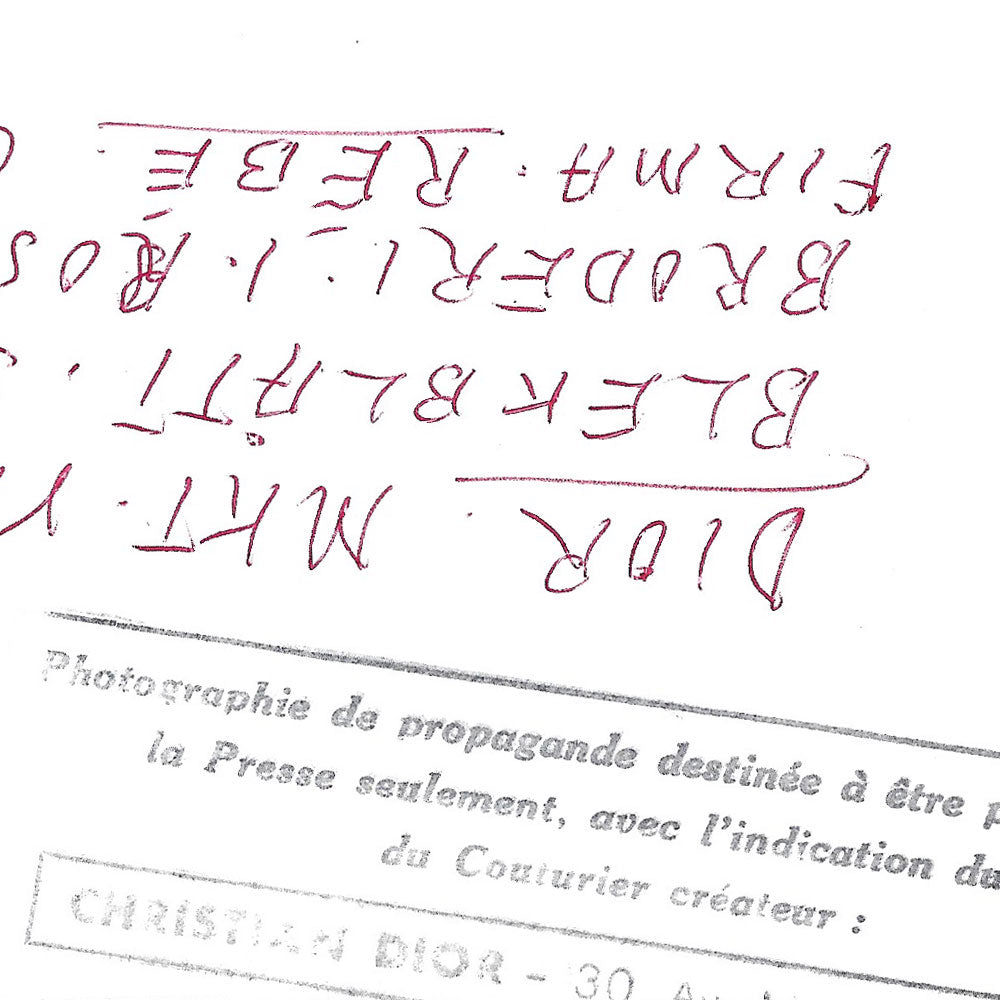 DIOR. MKT.
BLEKBLÅTT.
BRODERI. I. ROS
FIRMA. RÉBÉ.
Photographie de propagande destinée à être p
la Presse seulement, avec l'indication du
du Couturier créateur :
CHRISTIAN DIOR - 30